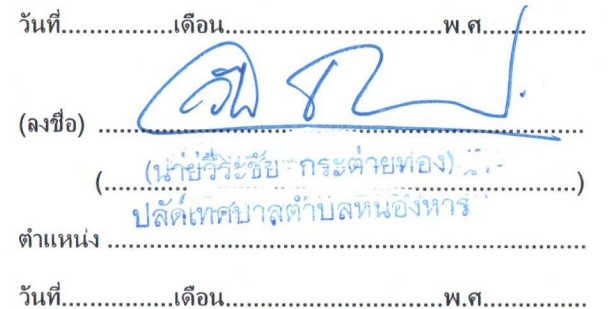 วันที่....................เดือน.......................................พ.ศ...................
(ลงชื่อ) ....................................................................................
(....(นายวีระชัย กระต่ายทอง)....)
ปลัดเทศบาลตำบลหนองหาร
ตำแหน่ง ....................................................................................
วันที่....................เดือน.......................................พ.ศ...................